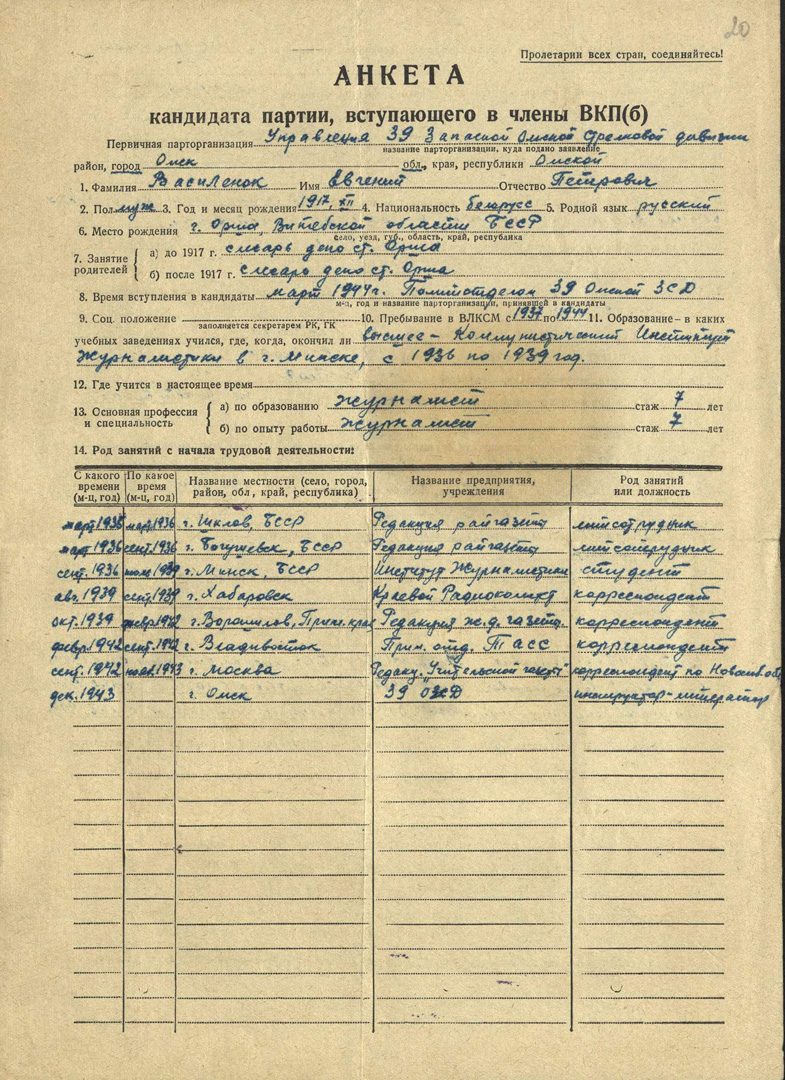 20
Пролетарии всех стран, соединяйтесь!
АНКЕТА
кандидата партии, вступающего в члены ВКП(б)
Первичная парторганизация Управления 39 Запасной Омской стрелковой дивизии
название парторганизации, куда подано заявление
район, город Омск обл., края, республики Омской
1. Фамилия Василенок Имя Евгений Отчество Петрович
2. Пол муж 3. Год и месяц рождения 1917, XII 4. Национальность белорусс 5. Родной язык русский
6. Место рождения г. Орша, Витебской области БССР
село, уезд, губ., область, край, республика
7. Занятие родителей
а) до 1917 г. слесарь депо ст. Орша
б) после 1917 г. слесарь депо ст. Орша
8. Время вступления в кандидаты март 1944 г. Политотделом 39 Омской ЗСД
м-ц, год и название парторганизации, принявшей в кандидаты
9. Соц. положение 10. Пребывание в ВЛКСМ с 1937 по 1944 11. Образование – в каких
заполняется секретарем РК, ГК
учебных заведениях учился, где, когда, окончил ли высшее – Коммунистический Институт
Журналистики в г. Минске, с 1936 по 1939 год.
12. Где учится в настоящее время
13. Основная профессия и специальность
а) по образованию журналист стаж 7 лет
б) по опыту работы журналист стаж 7 лет
14. Род занятий с начала трудовой деятельности:
С какого времени (м-ц, год) По какое время (м-ц, год) Название местности (село, город, район, обл, край, республика) Название предприятия, учреждения Род занятий или должность
март 1935 март 1936 г. Шклов, БССР Редакция райгазеты литсотрудник
март 1936 сент. 1936 г. Богушевск, БССР Редакция райгазеты литсотрудник
сент. 1936 июль 1939 г. Минск, БССР Институт Журналистики студент
авг. 1939 сент 1939 г. Хабаровск Краевой Радиокомитет корреспондент
окт. 1939 февр 1942 г. Ворошилов, Прим. края Редакция ж.д. газеты. корреспондент
февр. 1942 сент. 1942 г. Владивосток Прим. отд. ТАСС корреспондент
сент. 1942 нояб. 1943 г. Москва Редакц. "Учительской газеты" корреспондент по Новосиб. обл
дек. 1943 г. Омск 39 ОЗСД инструктор-литератор